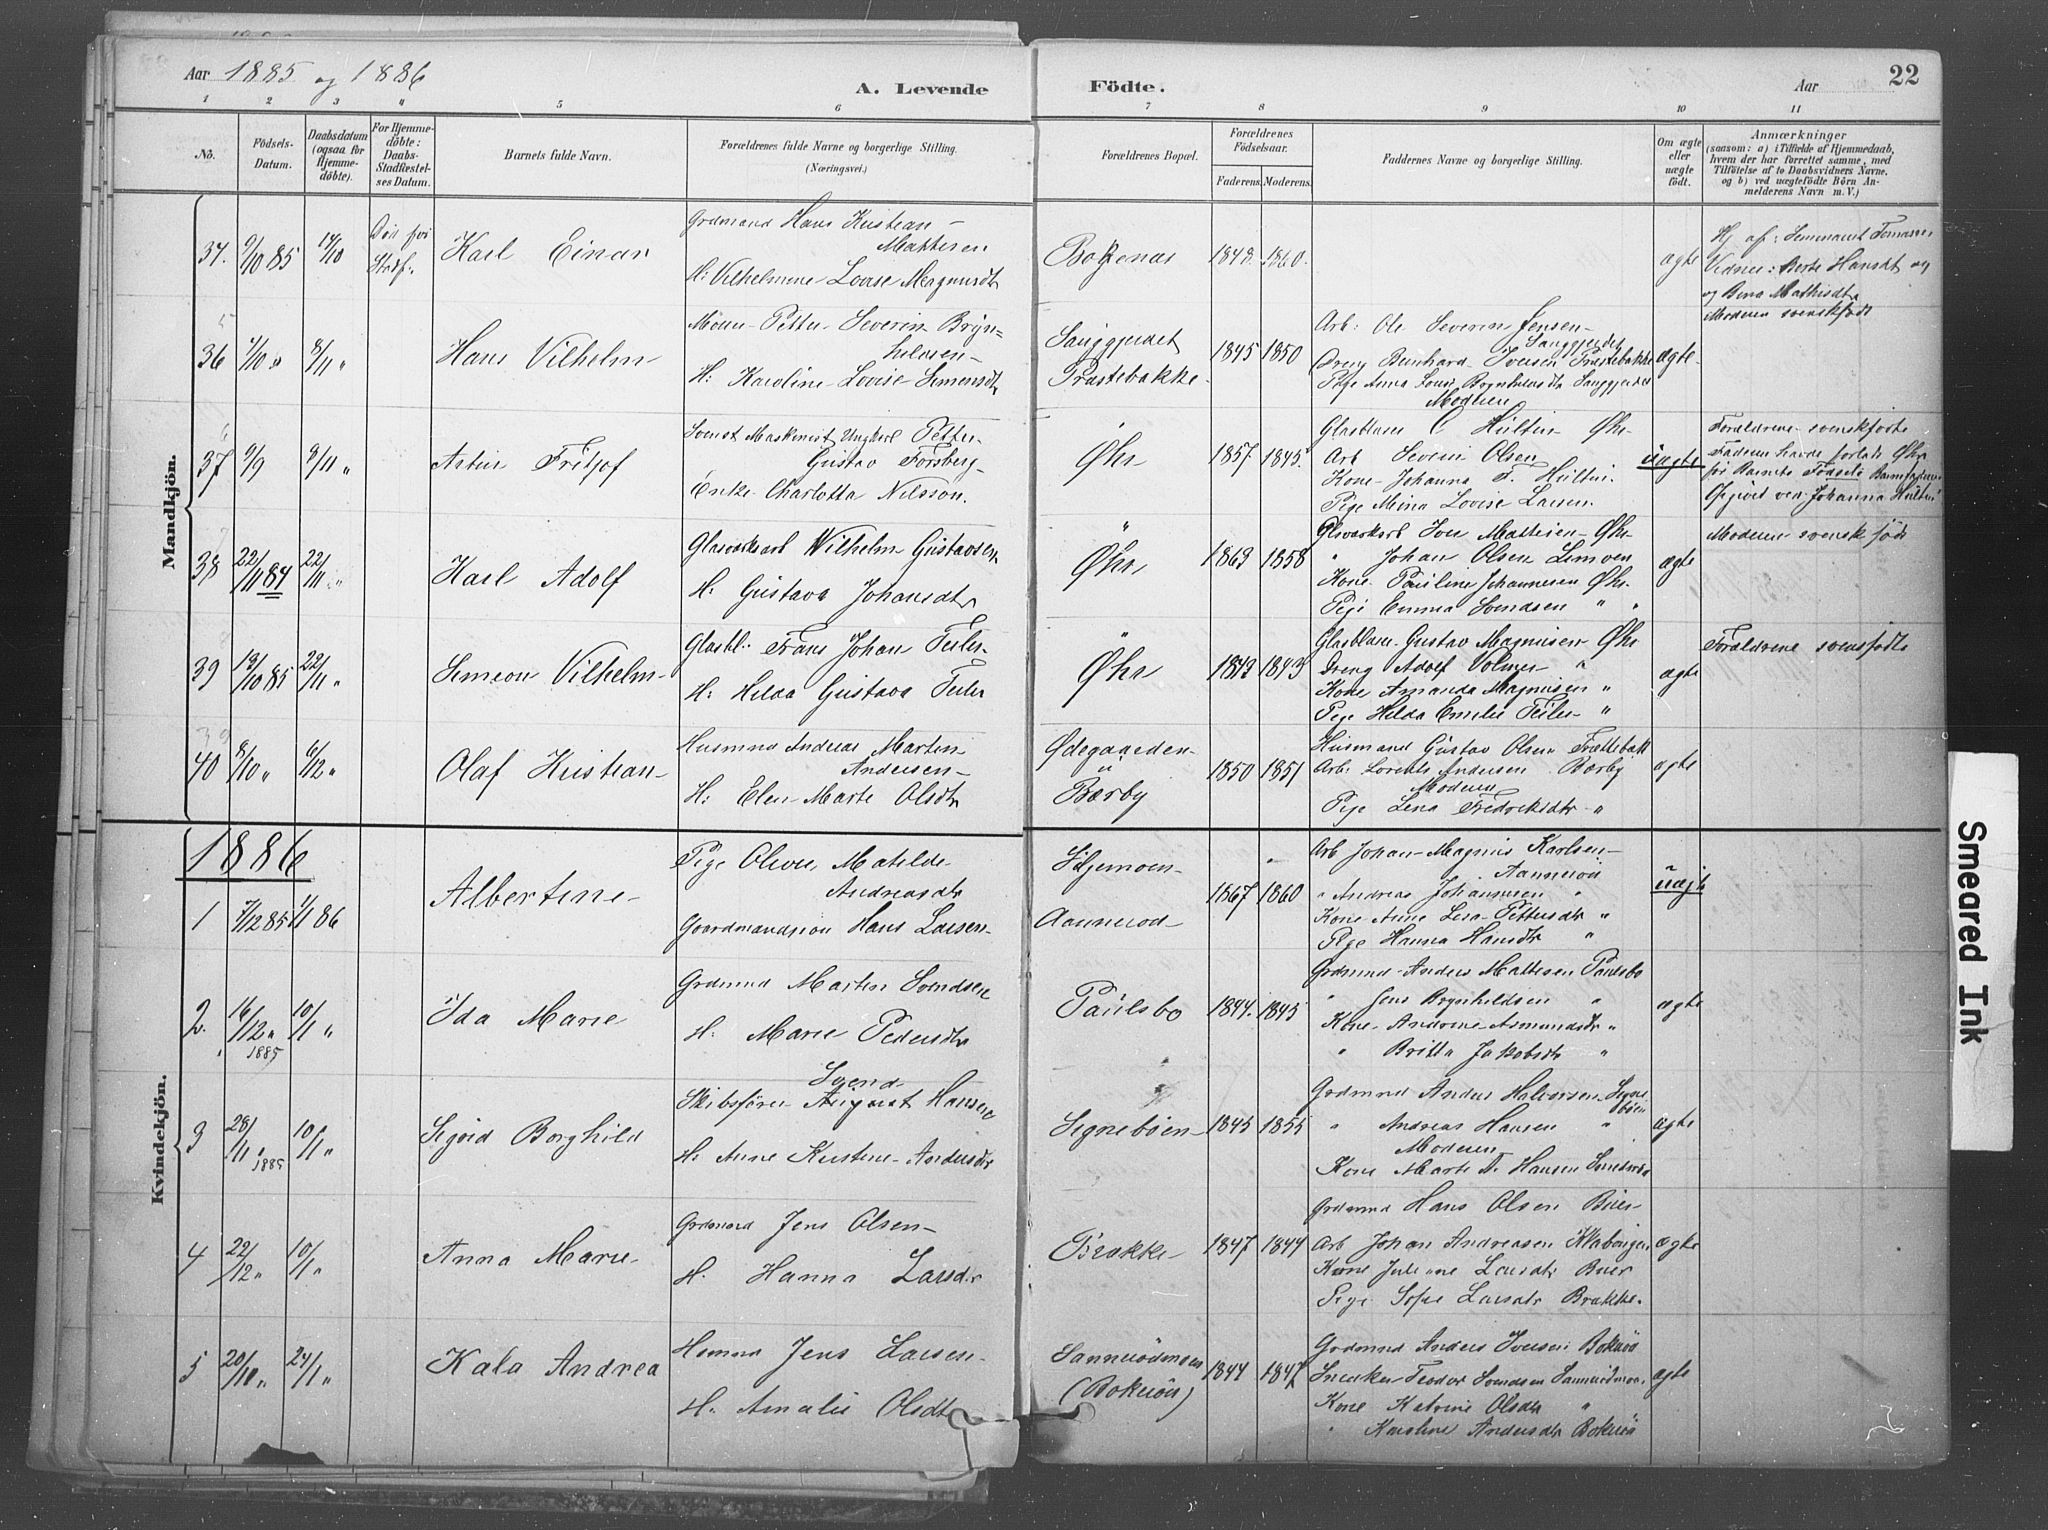 Aar 1885 og 1886
A. Levende Födte.
Aar
22
1 2 3 " 5 6 7 8 9 10 11
No.
Födsels-Datum.
Daabsdatum (ogsaa for Hjemmedöbte).
For Hjemmedöbte: Daabs-Stadfestelses Datum.
Barnets fulde Navn.
Forældrenes fulde Navne og borgerlige Stilling.
(Næringsvei.)
Forældrenes Bopæl.
Forældrenes Födselsaar.
Faderens. Moderens.
Faddernes Navne og borgerlige Stilling.
Om ægte eller uægte födt.
Anmærkninger
(saasom: a) i Tilfælde af Hjemmedaab, hvem der har forrettet samme, med Tilföielse af to Daabsvidners Navne, og b) ved uægtefödte Börn Anmelderens Navn m. V.)
Mandkjön.
37. 9/10 85 14/10 Död før Stadf.
Karl Einar
Grdmand Hans Kristian
Mathisen
H: Vilhelmine Lovise Magnusdtr
Bokenas 1848. 1860. ægte
Vidner: Berte Hansdt og
og Bina Mathisdtr
Moderen svenskfödt
36 7/10 " 8/11 "
Hans Vilhelm
Petter Severin Bryn-
hildsen
H: Karoline Lovise Simensdtr
Sanggjerdet
Præstebakke 1845 1850
Arb: Ole Severin Jensen
Sanggjerdet
Dreng Bernhard Iversen Præstebakke
Pige Anna Lovise Brynhildsdtr Sanggjerdet
Moderen
ægte
37 9/9 9/11 "
Artur Fritjof
Svensk Maskinist Ungkarl Petter
Gustav Forsberg
Enke Charlotta Nilsson.
Øhr 1857 1845.
Glasblaser C Hultin Øhr
Arb Severin Olsen
Kone Johanna F. Hultin
Pige Mina Lovise Larsen
uægte
Forældrene svenskfödte
Faderen havde forladt Øhr
før Barnets Fødsel
Opgivet ved Johanna Hultin
38 22/11 84 22/11 "
Karl Adolf
Glasværksarb Vilhelm Gustavsen
H: Gustava Johansdtr
Øhr 1863 1858
Glsværksarb Iver Mathisen Øhr
" Johan Olsen Limoen
Kone Pauline Johannesen Øhr
Pige Emma Svendsen " "
ægte
Moderen svensk födt
39 13/10 85 22/11 "
Simeon Vilhelm
Glasbl: Frans Johan Feiler
H: Hilda Gustava Feiler
Øhr 1843 1843
Glasblaser Gustav Magnusen Øhr
Dreng Adolf Volmer "
Kone Amanda Magnusen "
Pige Hilda Emelie Feiler "
ægte
Forældrene svenskfödte
40 8/10 " 6/12 "
Olaf Kristian
Husmnd Andreas Martin
Andersen
H: Elen Marte Olsdtr
Ødegaarden
u
Bærby 1850 1851
Husmand Gustav Olsen
Arb: Lorents Andersen Bærby
Moderen
Pige Lina Fredriksdtr "
ægte
1886
Kvindekjön.
1 7/12 85 1/1 86
Albertine
Pige Oliva Matilde
Andreasdtr
Gaardmandssön Hans Larsen
Aannerod 1867 1860
Arb Johan Magnus Karlsen
Aannerod
" Andreas Johannesen "
Kone Anne Lisa Pettersdtr "
Pige Hanna Hansdtr "
uægte
2. 16/12 " 1885 10/1 "
Ida Marie
Grdmnd Martin Svendsen
H. Marie Pedersdtr
Paulsbo 1844. 1845
Grdmnd Anders Mathisen Paulsbo
" Jens Brynhildsen "
Kone Andrine Asmundsdtr "
" Britta Jakobsdtr "
ægte
3 28/11 " 1885 10/1 "
Sigvid Borghild
Svend
Skibsfører August Hansen
H. Anne Kristine Andersdtr
Signebøen 1845 1855
Grdmnd Anders Halvorsen Signebøen
" Andreas Hansen "
Moderen
Kone Marte T. Hansen
ægte
4 22/12 " 10/1 "
Anna Marie
Grdmnd Jens Olsen
H. Hanna Larsdtr
Brække 1847 1844
Grdmnd Hans Olsen Buer
Arb Johan Andreasen
Kone Juliane Larsdtr Buer
Pige Sofie Larsdtr Brække.
ægte
5 20/10 " 24/1 "
Kala Andrea
Hsmnd Jens Larsen
H. Amalie Olsdtr
Sannerödmoen
(Bokeröd) 1844 1847
Grdmnd Anders Iversen Bokeröd
Snedker Teodor Svendsen Sannerödmoen
Kone Katrine Olsdtr "
" Karoline Andersdtr Bokeröd
ægte
Smeared Ink